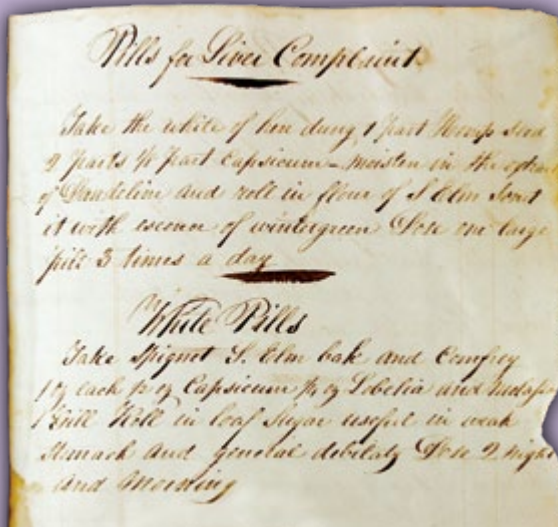 Pills for Liver Complaint
Take the white of hen dung 1 part Hemp seed
2 parts ½ part Capsicum - moisten in the
of Dandelion and roll in flour of S Elm Scent
it with essence of wintergreen Dose one large
pill 3 times a day
White Pills
Take Spignet S. Elm bark and Comfrey
1 oz each ½ oz Capsicum ¼ oz Lobelia and
1 Gill Roll in loaf Sugar useful in weak
Stomach and general debility Dose 2 night
and Morning